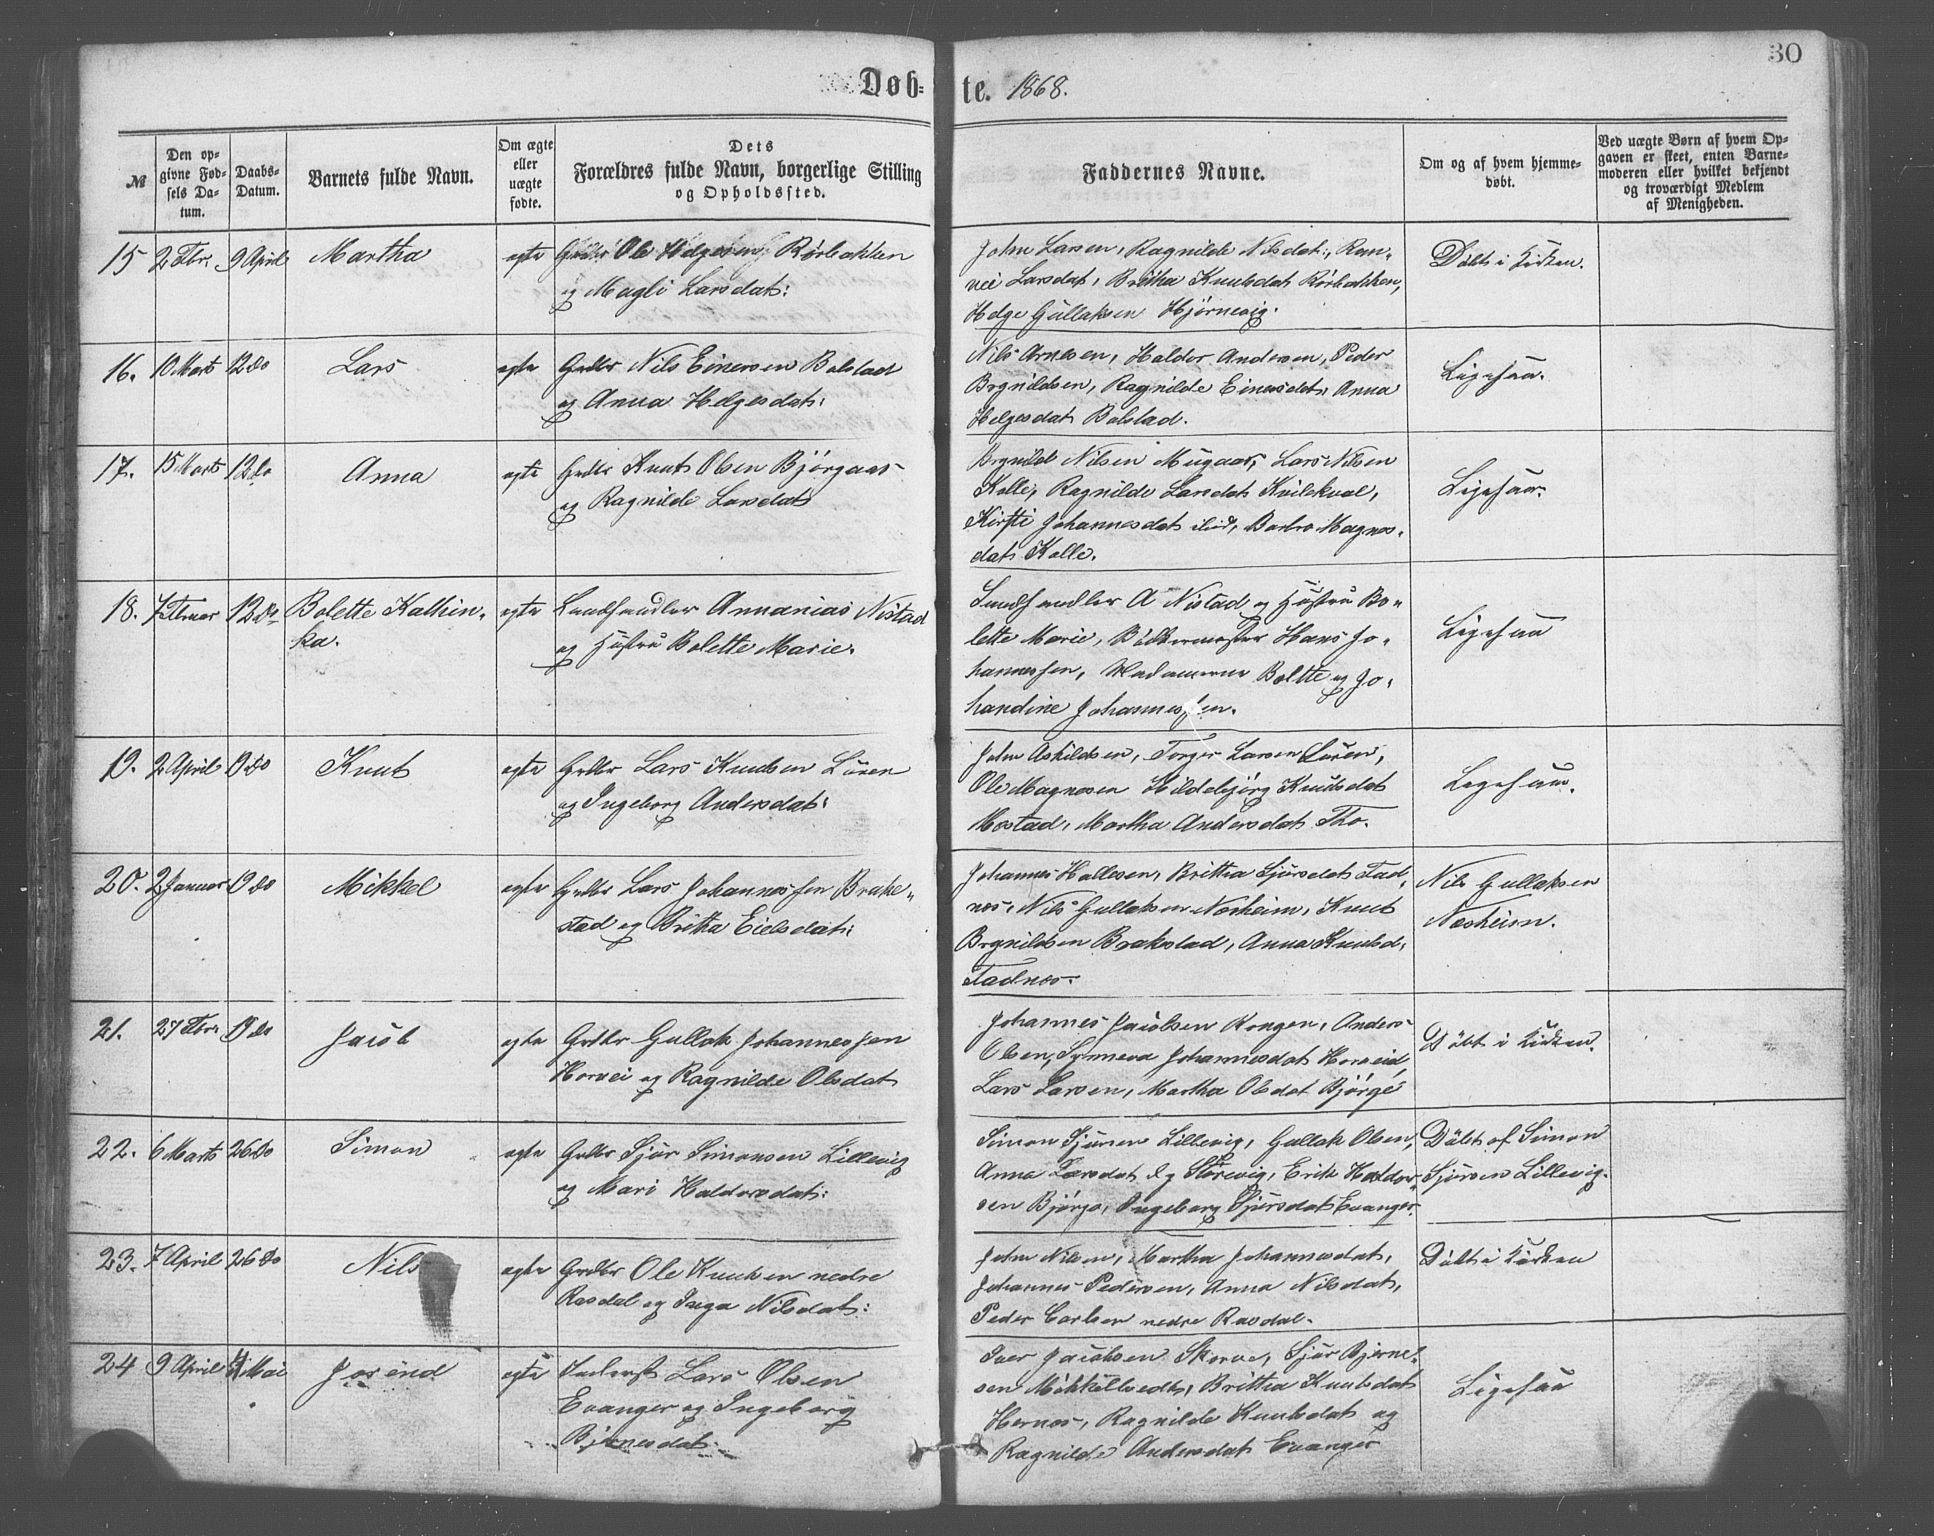 30
Døb-te. 1868.
№
Den op-
givne Fød-
sels Da-
tum.
Daabs-
Datum.
Barnets fulde Navn.
Om ægte
eller
uægte
fødte.
Dets
Forældres fulde Navn, borgerlige Stilling
og Opholdssted.
Faddernes Navne.
Om og af hvem hjemme-
døbt.
Ved uægte Børn af hvem Op-
gaven er skeet, enten Barne-
moderen eller hvilket bekjendt
og troværdigt Medlem
af Menigheden.
15 2 Fbr. 9 April Martha egte Grdbr Ole Helgesen Rørbakken
og Magli Larsdat:
John Larsen, Ragnilde Nilsdat:, Ran-
vei Larsdat, Britha Knutsdat Rørbakken,
Helge Gullaksen Hjørnevig.
Døbt i Kirken.
16. 10 Marts 12 do Lars egte Grdbr Nils Einersen Bolstad
og Anna Helgesdat:
Nils Arnesen, Haldor Andersen, Peder
Brynildsen, Ragnilde Einersdat, Anna
Helgesdat Bolstad.
Ligesaa.
17. 15 Marts 12 do Anna egte Grdbr Knut Olsen Bjørgaas
og Ragnilde Larsdat
Brynild Nilsen Mugaas, Lars Nilsen
Kolle, Ragnilde Larsdat Kvilekval,
Kirsti Johannesdat ibid, Barbro Magnes-
dat Kolle.
Ligesaa.
18. 7 Februar 12 do Bolette Kathin-
ka. egte Landhandler Annanias Nistad
og Hustru Bolette Marie.
Landhandler A Nistad og Hustru Bo-
lette Marie, Bødkermester Hans Jo-
hannessen, Madamerne Boltte og Jo-
handine Johannessen.
Ligesaa
19. 2 April 19 do Knut egte Grdbr Lars Knutsen Løren
og Ingeborg Andersdat:
John Askildsen, Torger Larsen Løren,
Ole Magnesen Hildebjørg Knutsdat
Mostad, Martha Andersdat Tho.
Ligesaa.
20. 2 Januar 19 do Mikkel egte Grdbr Lars Johannessen Brake-
stad og Britha Eielsdat:
Johannes Hallesen, Brittha Sjursdat Fad-
nes, Nils Gullaksen Nesheim, Knut
Brynildsen Brakestad, Anna Knutsd.
Fadnes.
Nils Gullaksen
Nesheim.
21. 27 Fbr. 19 do Jacob egte Grdbr Gullak Johannessen
Horvei og Ragnilde Olsdat
Johannes Jacobsen Rongen, Anders
Olsen, Synneva Johannesdat Horveid,
Lars Larsen, Martha Olsdat Bjørge
Døbt i Kirken.
22. 6 Marts 26 do Simon egte Grdbr Sjur Simonsen Lillevig
og Mari Haldorsdat:
Simon Sjursen Lillevig, Gullak Olsen,
Anna Larsdat Storevig, Erik Haldor-
sen Bjørgo, Ingeborg Sjursdat Evanger.
Døbt af Simon
Sjursen Lillevig.
23. 7 April 26 do Nils egte Grdbr Ole Knutsen nedre
Rasdal og Inga Nilsdat:
John Nilsen, Martha Johannesdat,
Johannes Pedersen, Anna Nilsdat,
Peder Carlsen nedre Rasdal.
Døbt i Kirken
24 9 April 4 Mai Josend egte Inderst Lars Olsen
Evanger og Ingeborg
Bjørnesdat.
Iver Jacobsen Skorve, Sjur Bjørne-
sen Mikkeltvedt, Brittha Knutsdat
Hernes, Ragnilde Knutsdat og
Ragnilde Andersdat Evanger
Ligesaa